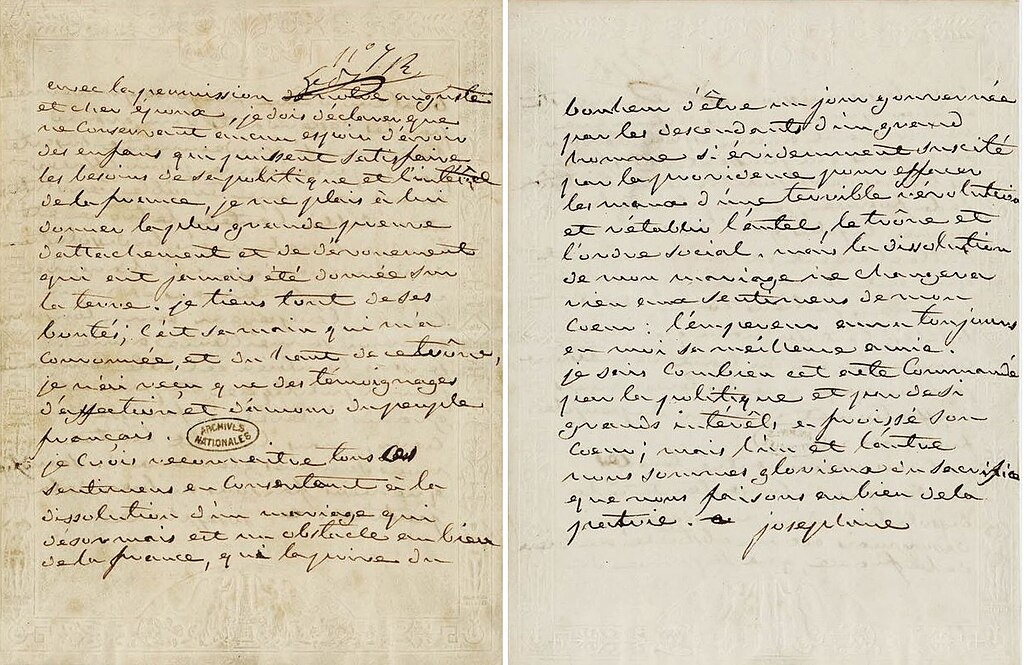 avec la permission de notre auguste
et cher époux, je dois déclarer que
ne conservant aucun espoir d'avoir
des enfans qui puissent satisfaire
les besoins de sa politique et l'intérêt
de la france, je me plais à lui
donner la plus grande preuve
d'attachement et de dévouement
qui ait jamais été donnée sur
la terre. je tiens tout de ses
bontés; c'est sa main qui m'a
couronnée, et du haut de ce trône,
je n'ai reçu que des témoignages
d'affection et d'amour du peuple
français.
ARCHIVES
NATIONALES
je crois reconnaitre tous ces
sentimens en consentant à la
dissolution d'un mariage qui
désormais est un obstacle au bien
de la france, qui la prive du
bonheur d'être un jour gouvernée
par les descendants d'un grand
homme si évidemment suscité
par la providence pour effacer
les maux d'une terrible révolution
et rétablir l'autel, le trône et
l'ordre social. mais la dissolution
de mon mariage ne changera
rien aux sentimens de mon
coeur: l'empereur aura toujours
en moi sa meilleure amie.
je sais combien cet acte commandé
par la politique et par de si
grands intérêts a froissé son
coeur; mais l'un et l'autre
nous sommes glorieux du sacrifice
que nous faisons au bien de la
patrie. josephine